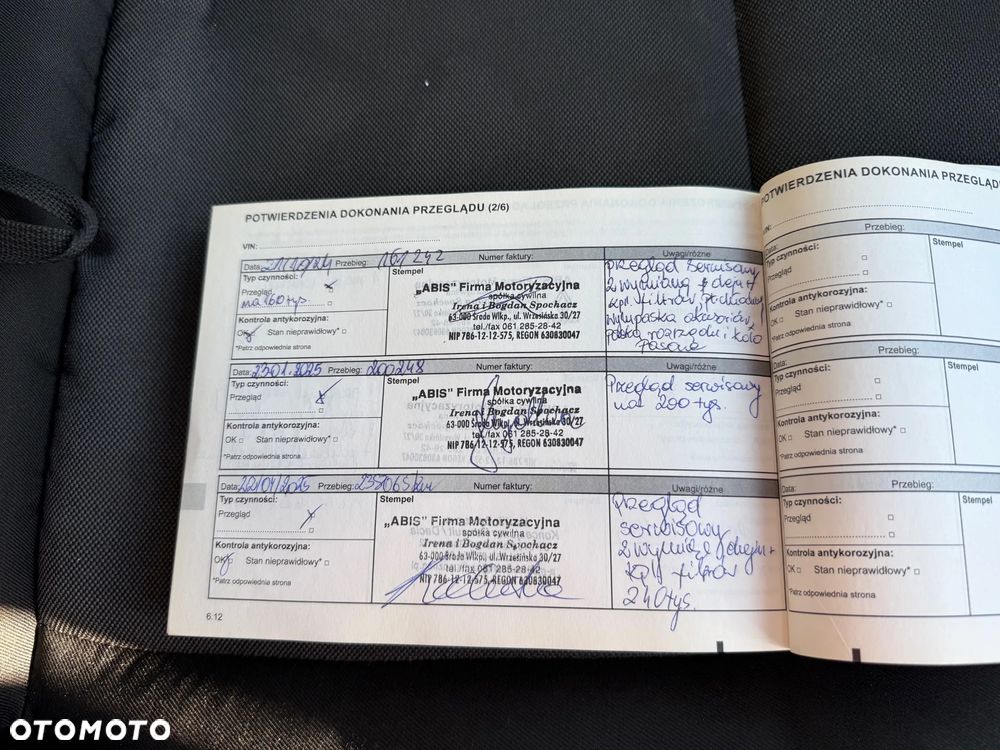 POTWIERDZENIA DOKONANIA PRZEGLĄDU (2/6)
VIN:
Data: Przebieg: 161 242 Numer faktury: Uwagi/różne
Typ czynności:
Przegląd
na 160 tys.
Kontrola antykorozyjna:
OK Stan nieprawidłowy*
*Patrz odpowiednia strona
Stempel
„ABIS" Firma Motoryzacyjna
spółka cywilna
Irena i Bogdan Spochacz
63-000 Środa Wlkp., ul. Wrzesińska 30/27
tel./fax 061 285-28-42
NIP 786-12-12-575, REGON 630830047
Przegląd serwisowy
z wymianą
kpl. filtrów,
paska
pasowe
Data: 23.01.2025 Przebieg: 200248 Numer faktury: Uwagi/różne
Typ czynności:
Przegląd
Kontrola antykorozyjna:
OK Stan nieprawidłowy*
*Patrz odpowiednia strona
Stempel
„ABIS" Firma Motoryzacyjna
spółka cywilna
Irena i Bogdan Spochacz
63-000 Środa Wlkp., ul. Wrzesińska 30/27
tel./fax 061 285-28-42
NIP 786-12-12-575, REGON 630830047
Przegląd serwisowy
na 200 tys.
Data: Przebieg: Numer faktury: Uwagi/różne
Typ czynności:
Przegląd
Kontrola antykorozyjna:
OK Stan nieprawidłowy*
*Patrz odpowiednia strona
Stempel
„ABIS" Firma Motoryzacyjna
spółka cywilna
Irena i Bogdan Spochacz
63-000 Środa Wlkp., ul. Wrzesińska 30/27
tel./fax 061 285-28-42
NIP 786-12-12-575, REGON 630830047
Przegląd
serwisowy
filtrów
240 tys.
6.12
POTWIERDZENIA DOKONANIA PRZEGLĄDU
VIN:
Data: Przebieg:
Typ czynności:
Przegląd
Kontrola antykorozyjna:
OK Stan nieprawidłowy*
*Patrz odpowiednia strona
Stempel
Data: Przebieg:
Typ czynności:
Przegląd
Kontrola antykorozyjna:
OK Stan nieprawidłowy*
*Patrz odpowiednia strona
Stempel
Data: Przebieg:
Typ czynności:
Przegląd
Kontrola antykorozyjna:
OK Stan nieprawidłowy*
*Patrz odpowiednia strona
Stempel
OTOMOTO